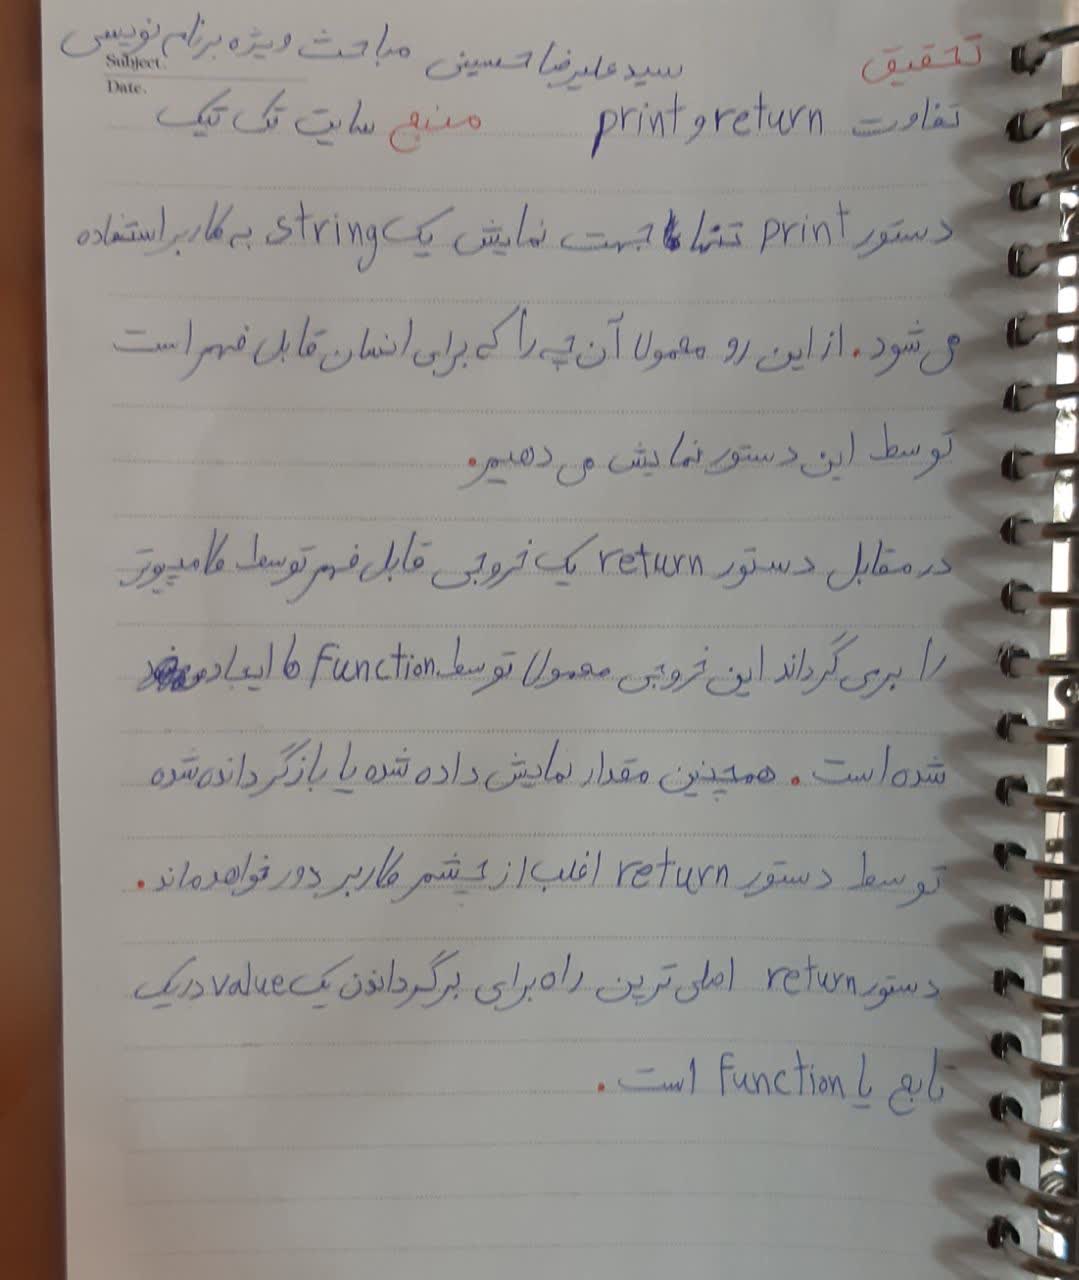 تحقیق سید علیرضا حسینی مباحث ویژه برنامه نویسی
Subject:
Date.
تفاوت return و print منبع سایت تک تیک
دستور print تنها جهت نمایش یک string به کاربر استفاده
می شود. از این رو معمولا آن چه را که برای انسان قابل فهم است
توسط این دستور نمایش می دهیم.
در مقابل دستور return یک خروجی قابل فهم توسط کامپیوتر
را برمی گرداند این خروجی معمولا توسط function ها ایجاد
شده است. همچنین مقدار نمایش داده شده یا بازگردانده شده
توسط دستور return اغلب از چشم کاربر دور خواهد ماند.
دستور return اصلی ترین راه برای برگرداندن یک value در یک
تابع یا function است.